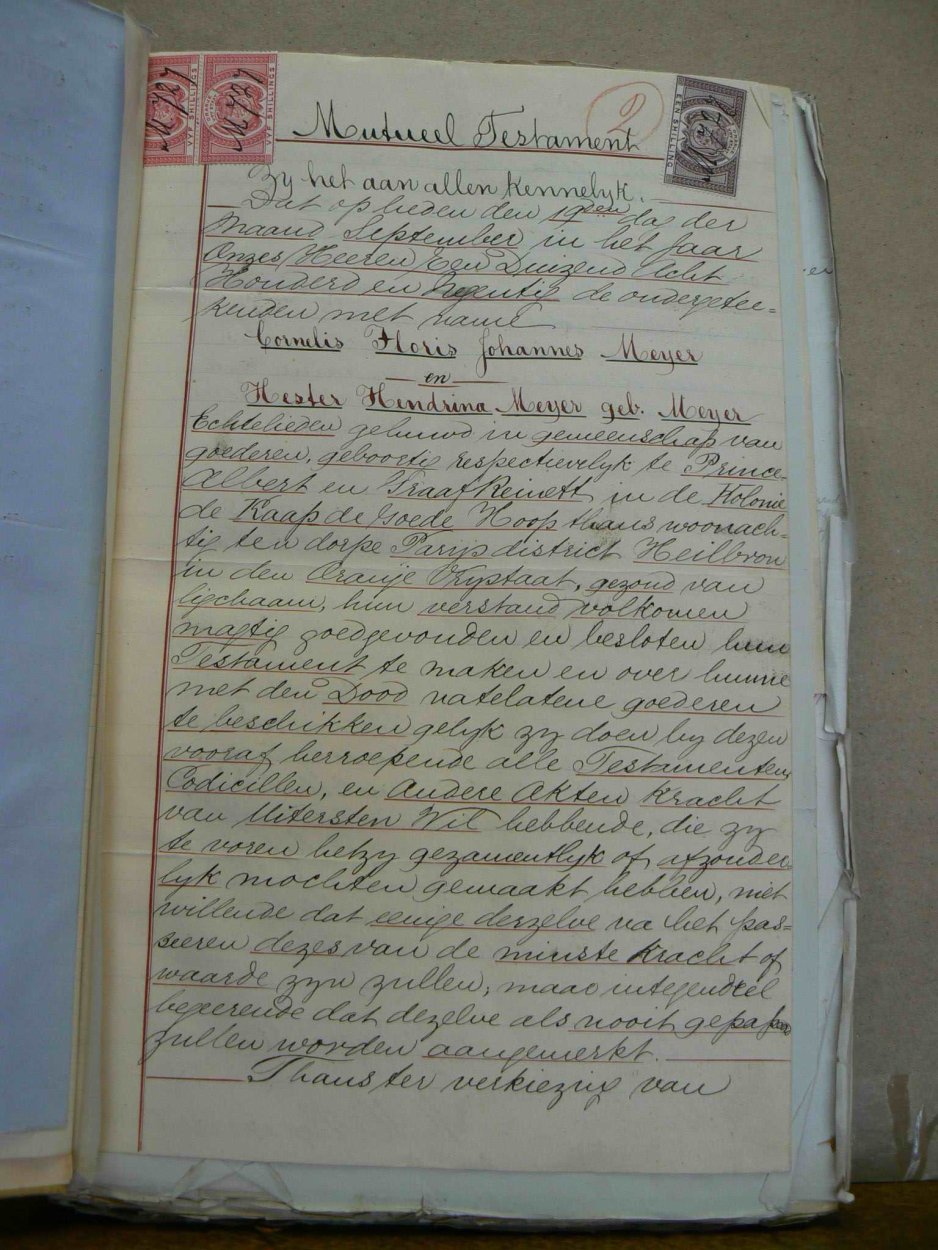 M 727
VYF SHILLINGS
M 727
VYF SHILLINGS
2
M 727
EEN SHILLING
Mutueel Testament
Zy het aan allen kennelyk.
Dat op heden den 19den dag der
Maand September in het Jaar
Onzes Heeren Een Duizend Acht
Honderd en Negentig de ondergetee=
kenden met name
Cornelis Floris Johannes Meyer
en
Hester Hendrina Meyer geb. Meyer
Echtelieden gehuwd in gemeenschap van
goederen, geboortig respectievelyk te Prince
Albert en Graaf Reinett in de Kolonie
de Kaap de Goede Hoop thans woonach=
tig ten dorpe Parys district Heilbron
in den Oranje Vrystaat, gezond van
ligchaam, hun verstand volkomen
magtig goedgevonden en besloten hun
Testament te maken en over hunne
met den Dood natelatene goederen
te beschikken gelyk zy doen by dezen
vooraf herroepende alle Testamenten
Codicillen, en Andere Akten Kracht
van Uitersten Wil hebbende, die zy
te voren hetzy gezamentlyk of afzonder
lyk mochten gemaakt hebben, niet
willende dat eenige derzelve na het pas=
seeren dezes van de minste Kracht of
waarde zyn zullen, maar integendeel
begeerende dat dezelve als nooit gepasseerd
zullen worden aangemerkt.
Thans ter verkiezing van